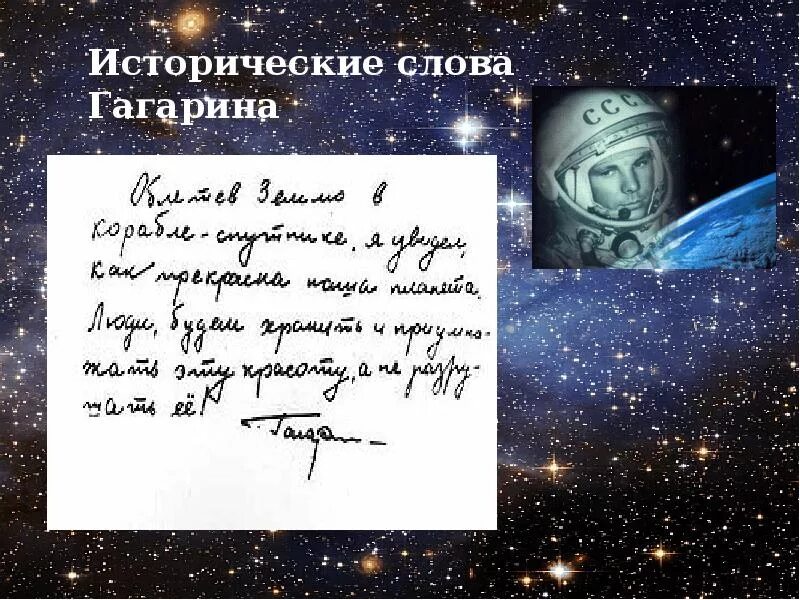 Исторические слова
Гагарина
СССР
Облетев Землю в
корабле-спутнике, я увидел,
как прекрасна наша планета.
Люди, будем хранить и приумно-
жать эту красоту, а не разру-
шать её!
Гагарин